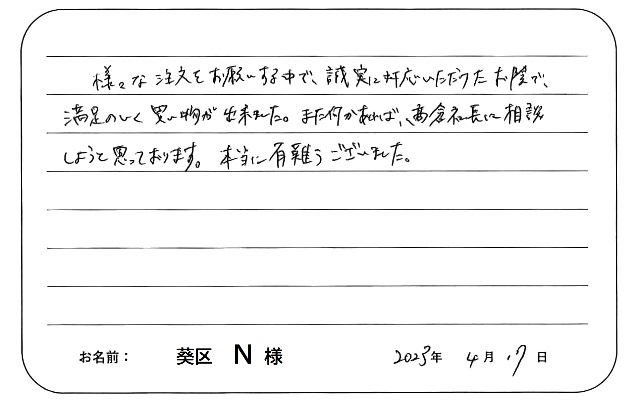 様々な注文をお願いする中で、誠実に対応いただけたお陰で、
満足のいく買い物が出来ました。また何かあれば、高倉社長に相談
しようと思っております。本当に有難うございました。
お名前： 葵区 N 様 2023年 4月 17日